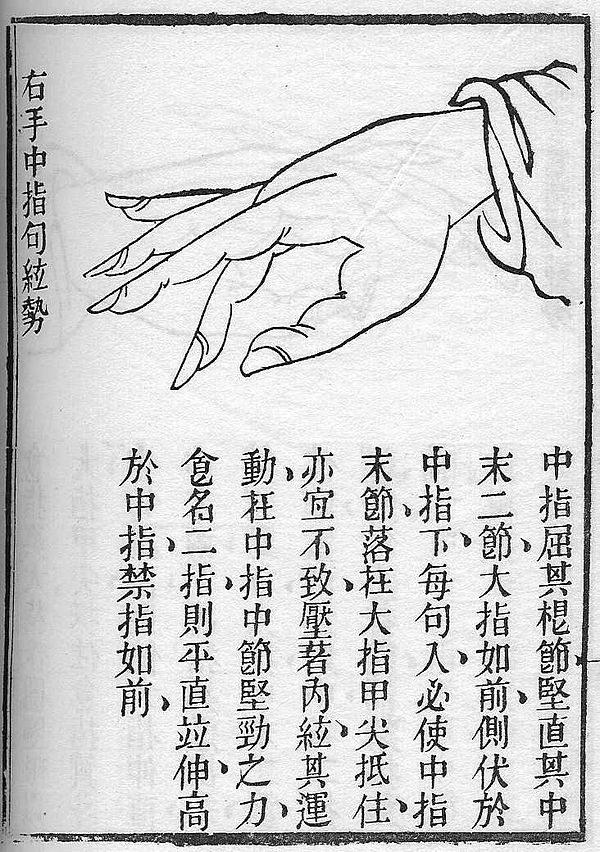 右手中指句絃勢
中指屈其根節、堅直其中
末二節、大指如前、側伏於
中指下、每句入、必使中指
末節、落在大指甲尖抵住、
亦宜不致、壓著內絃、其運
動、在中指中節堅勁之力、
食名二指、則平直竝伸、高
於中指、禁指如前、